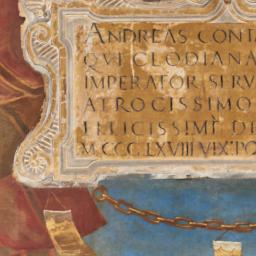 ANDREAS CONTA
QVI CLODIANA
IMPERATOR SERV
ATROCISSIMO
FELICISSIME DE
M.CCC.LXVIII VIX PO